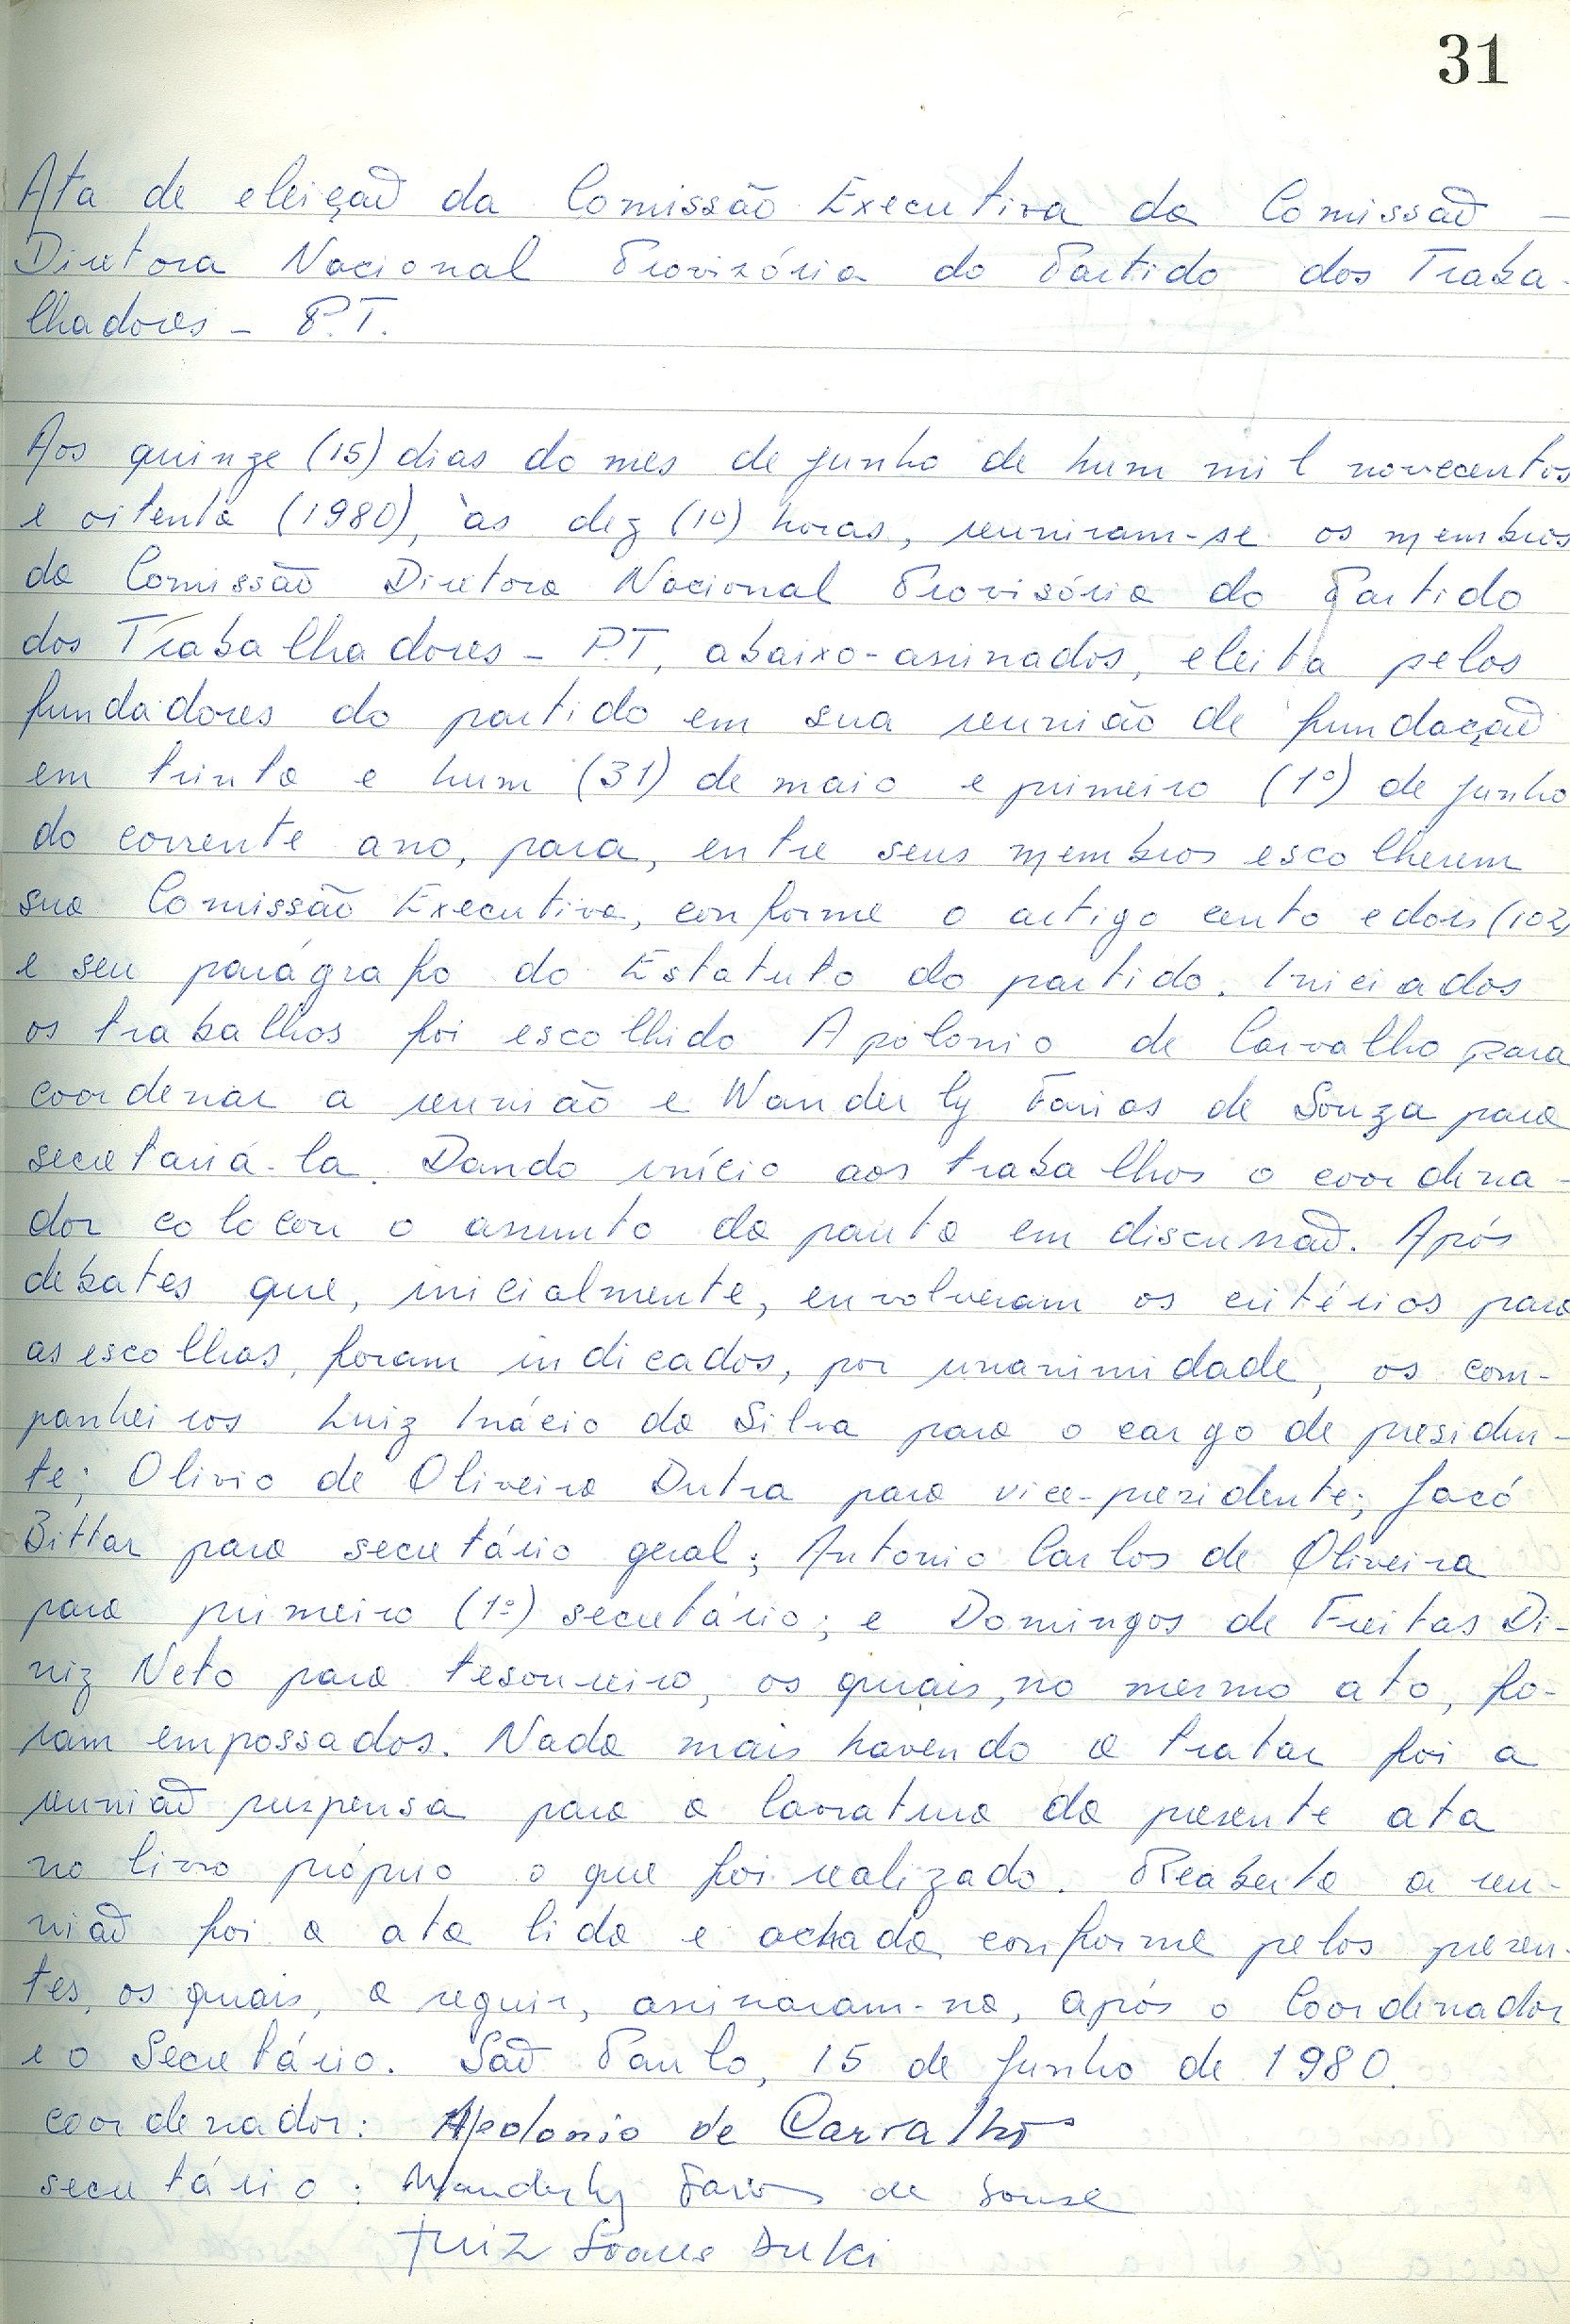 31
Ata de eleição da Comissão Executiva da Comissão -
Diretora Nacional Provisória do Partido dos Traba-
lhadores - P.T.
Aos quinze (15) dias do mes de junho de hum mil novecentos
e oitenta (1980), às dez (10) horas, reuniram-se os membros
da Comissão Diretora Nacional Provisória do Partido
dos Trabalhadores - P.T, abaixo-assinados, eleita pelos
fundadores do partido em sua reunião de fundação
em trinta e hum (31) de maio e primeiro (1º) de junho
do corrente ano, para, entre seus membros escolherem
sua Comissão Executiva, conforme o artigo cento e dois (102)
e seu parágrafo do Estatuto do partido. Iniciados
os trabalhos foi escolhido Apolonio de Carvalho para
coordenar a reunião e Wanderly Farias de Souza para
secretariá-la. Dando início aos trabalhos o coordena-
dor colocou o assunto da pauta em discussão. Após
debates que, inicialmente, envolveram os critérios para
as escolhas, foram indicados, por unanimidade, os com-
panheiros Luiz Inácio da Silva para o cargo de presiden-
te; Olivio de Oliveira Dutra para vice-presidente; Jacó
Bittar para secretário geral; Antonio Carlos de Oliveira
para primeiro (1º) secretário; e Domingos de Freitas Di-
niz Neto para tesoureiro, os quais, no mesmo ato, fo-
ram empossados. Nada mais havendo a tratar foi a
reunião suspensa para a lavratura da presente ata
no livro próprio o que foi realizado. Reaberta a reu-
nião foi a ata lida e achada conforme pelos presen-
tes, os quais, a seguir, assinaram-na, após o Coordenador
e o Secretário. São Paulo, 15 de Junho de 1980.
coordenador: Apolonio de Carvalho
secretário: Wanderly Farias de Souza
Luiz Soares Dulci